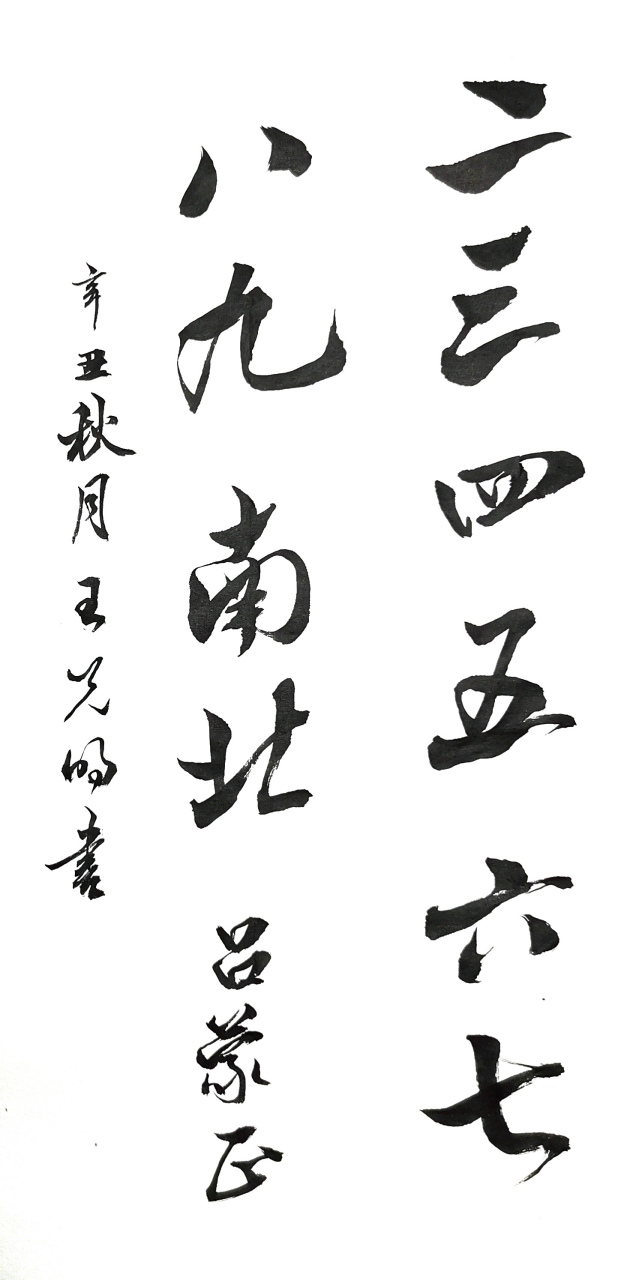 二三四五六七
八九南北 吕蒙正
辛丑秋月王光明书